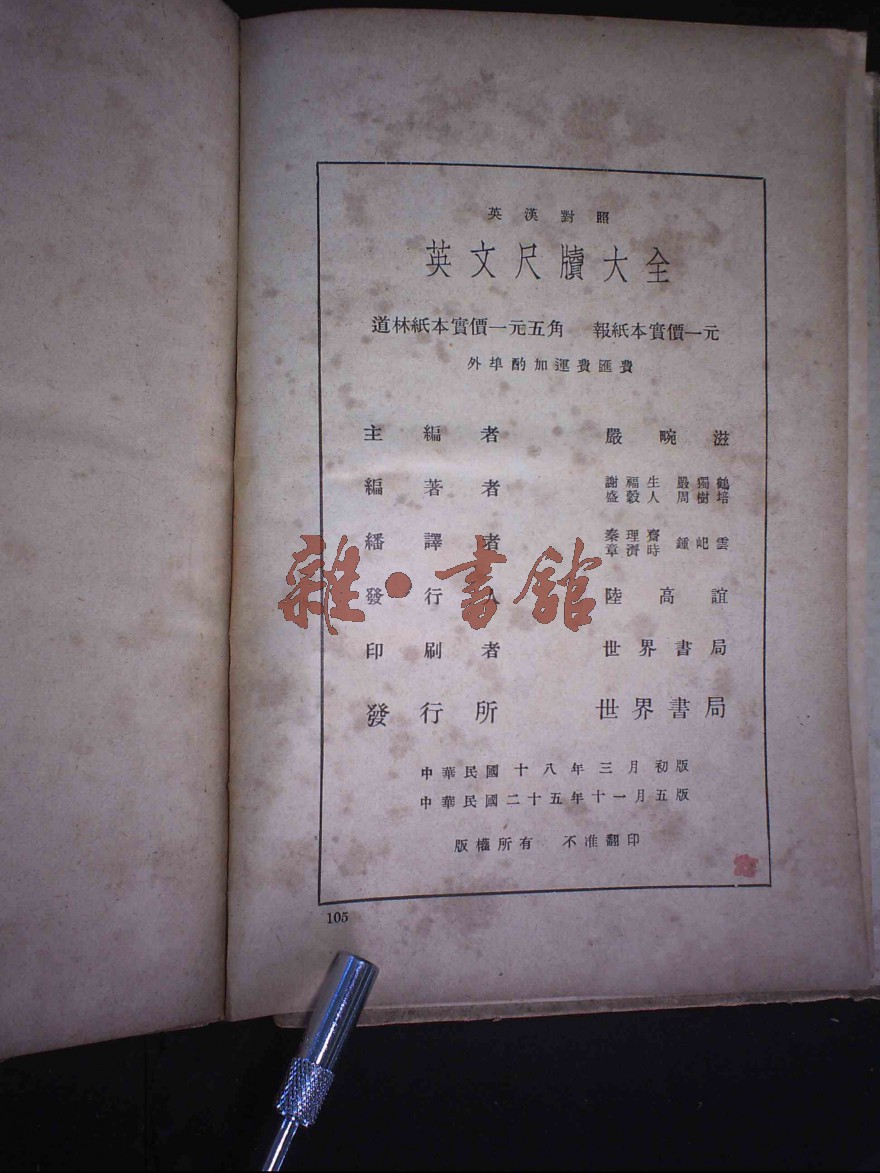 英漢對照
英文尺牘大全
道林紙本實價一元五角 報紙本實價一元
外埠酌加運費匯費
主編者 嚴畹滋
編著者 謝福生 嚴獨鶴
盛穀人 周樹培
繙譯者 秦理齋 鍾屺雲
章濟時
發行人 陸高誼
印刷者 世界書局
發行所 世界書局
中華民國十八年三月初版
中華民國二十五年十一月五版
版權所有 不准翻印
105
雜·書館